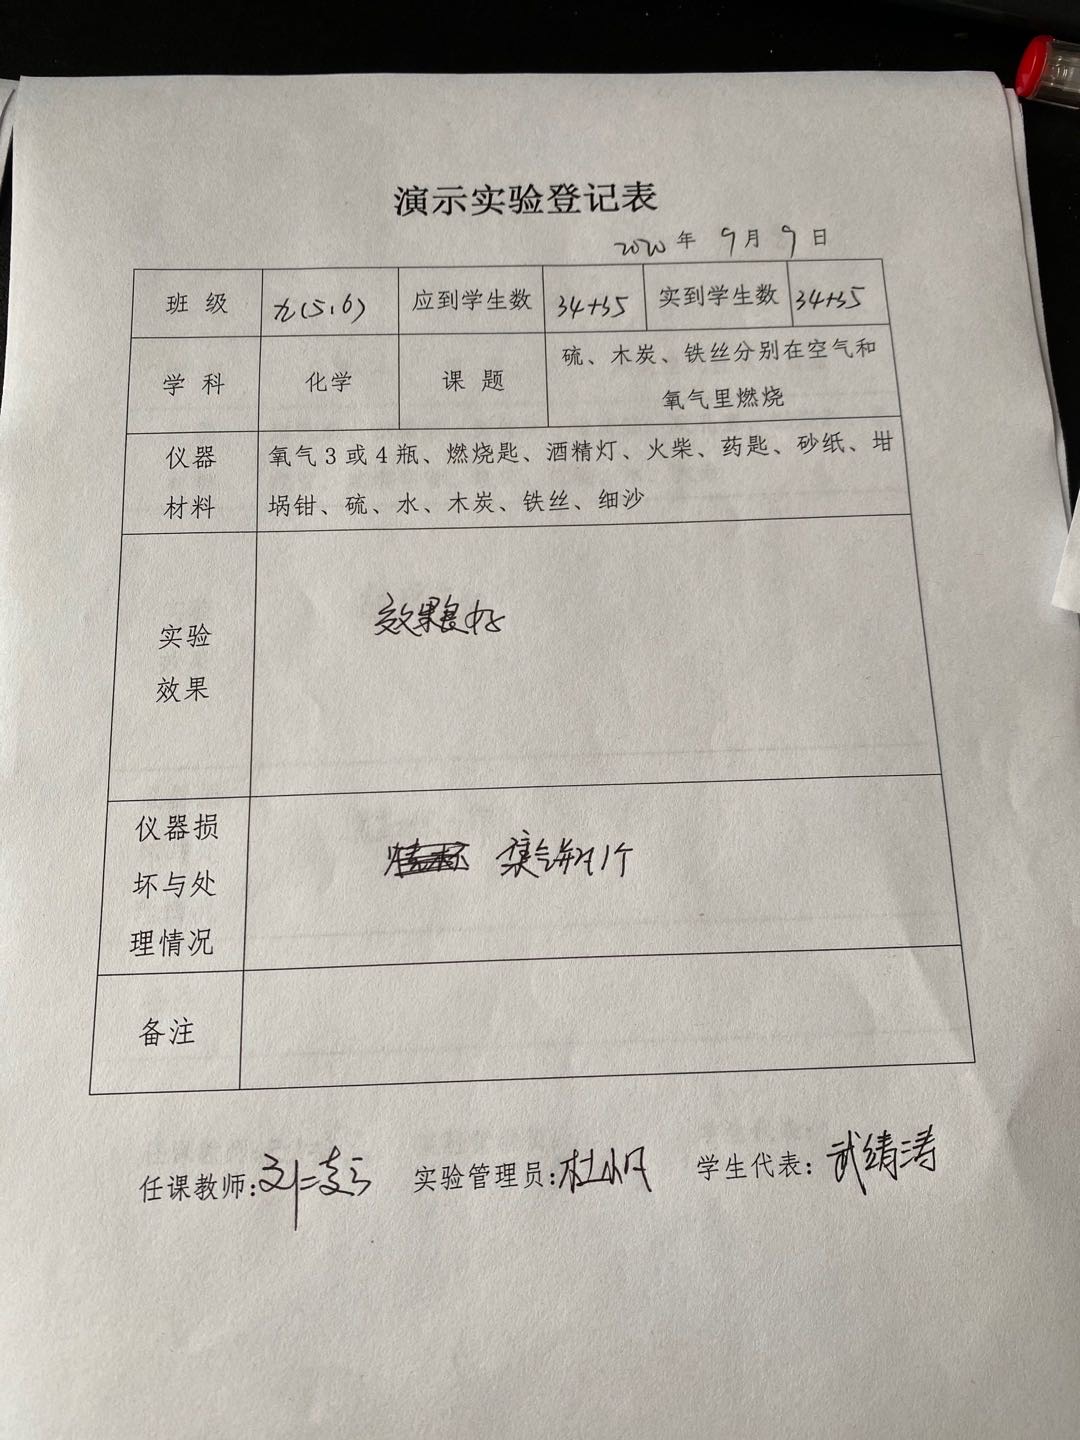 演示实验登记表
2020年 9月 9日
班 级 九(5,6) 应到学生数 34+35 实到学生数 34+35
学 科 化学 课 题 硫、木炭、铁丝分别在空气和
氧气里燃烧
仪器 氧气3或4瓶、燃烧匙、酒精灯、火柴、药匙、砂纸、坩
材料 埚钳、硫、水、木炭、铁丝、细沙
实验
效果
效果良好
仪器损
坏与处
理情况
集气瓶1个
备注
任课教师: 实验管理员:杜 学生代表:武靖涛